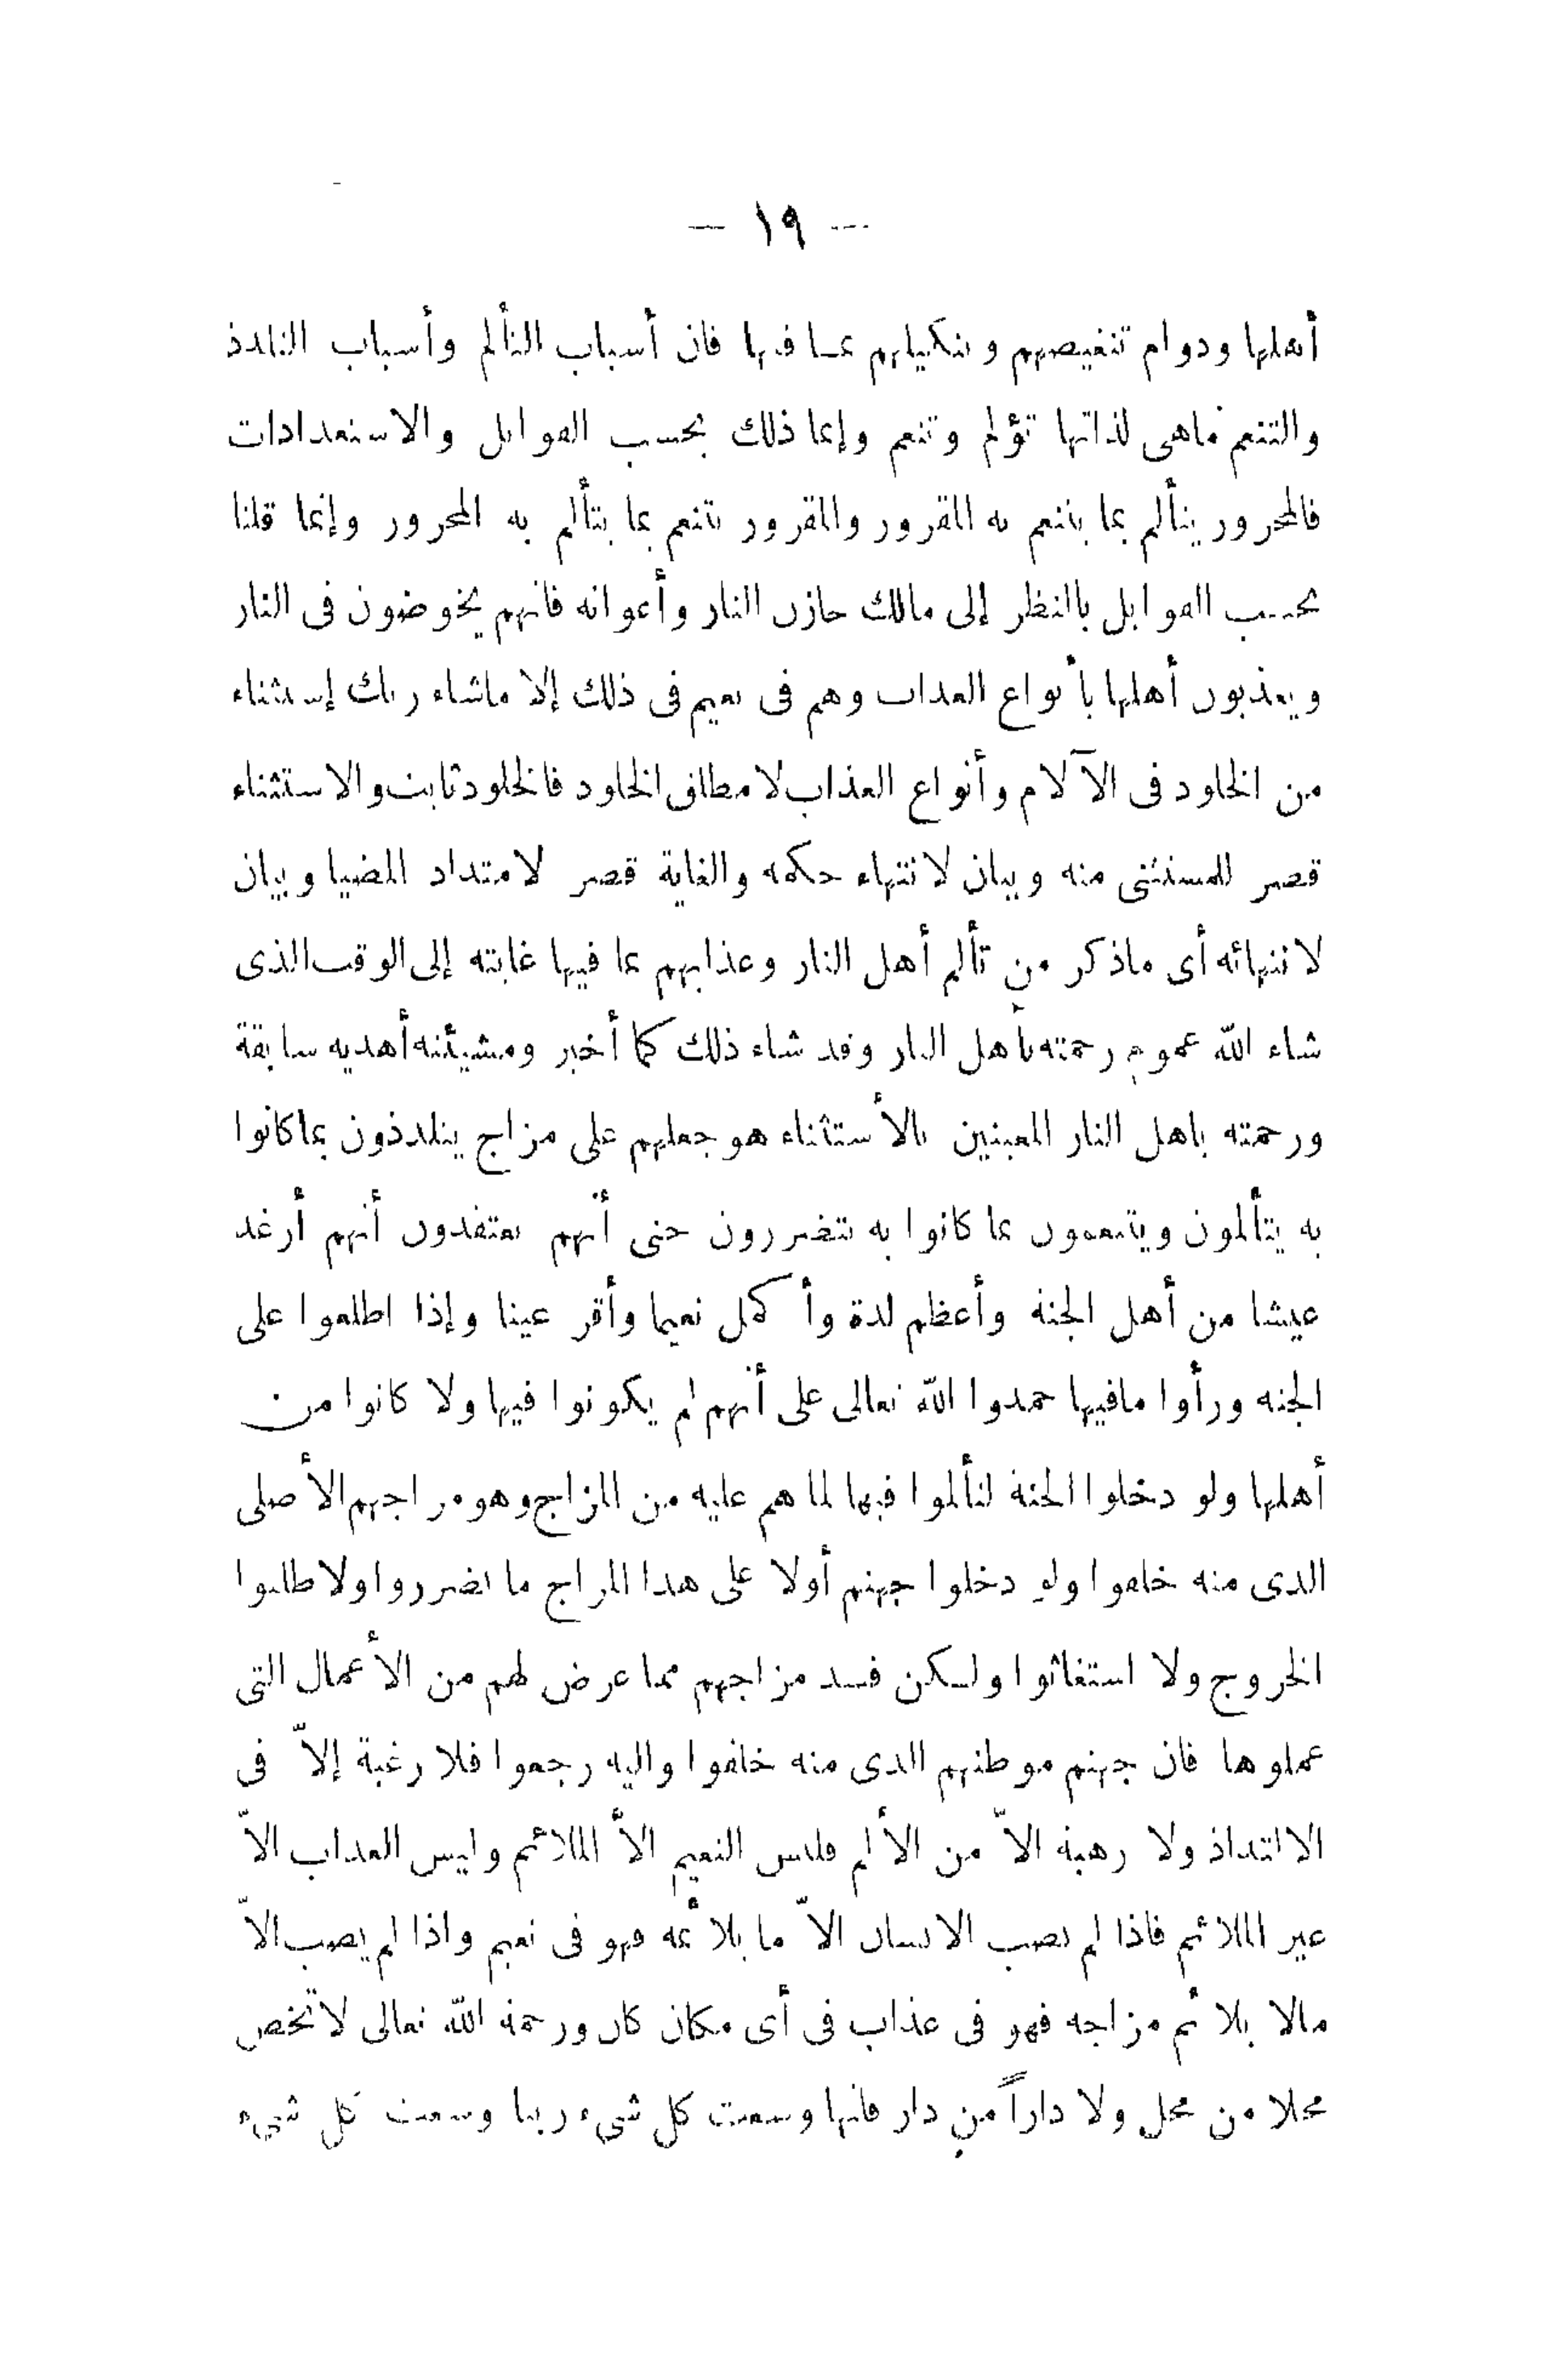 — ١٩ —
أهلها ودوام تنغيصهم وتنكيلهم بما فيها فان أسباب التألم وأسباب التلذذ
والتنعم ماهى لذاتها تؤلم وتنعم وإنما ذلك بحسب القوابل والاستعدادات
فالمحرور يتألم بما يتنعم به المقرور والمقرور يتنعم بما يتألم به المحرور وإنما قلنا
بحسب القوابل بالنظر إلى مالك خازن النار وأعوانه فانهم يخوضون فى النار
ويعذبون أهلها بأنواع العذاب وهم فى نعيم فى ذلك إلا ماشاء ربك إستثناء
من الخلود فى الآلام وأنواع العذاب لا مطلق الخلود فالخلود ثابت والاستثناء
قصر للمستثنى منه وبيان لانتهاء حكمه والغاية قصر لامتداد المضيا وبيان
لانتهائه أى ماذكر من تألم أهل النار وعذابهم بما فيها غايته إلى الوقت الذى
شاء الله عموم رحمته بأهل النار وقد شاء ذلك كما أخبر ومشيئته أهديه سابقة
ورحمته باهل النار المعينين بالأستثناء هو جعلهم على مزاج يتلذذون بما كانوا
به يتألمون ويتنعمون بما كانوا به يتضررون حتى أنهم يعتقدون أنهم أرغد
عيشا من أهل الجنة وأعظم لذة وأكمل نعيما وأقر عينا وإذا اطلعوا على
الجنه ورأوا مافيها حمدوا الله تعالى على أنهم لم يكونوا فيها ولا كانوا من
أهلها ولو دخلوا الجنة لتألموا فيها لما هم عليه من المزاج وهو مزاجهم الأصلى
الذى منه خلقوا ولو دخلوا جهنم أولا على هذا المزاج ما تضرروا ولا طلبوا
الخروج ولا استغاثوا ولكن فسد مزاجهم مما عرض لهم من الأعمال التى
عملوها فان جهنم موطنهم الذى منه خلقوا واليه رجعوا فلا رغبة إلاّ فى
الالتذاذ ولا رهبة الاّ من الألم فليس النعيم الاّ الملائم وليس العذاب الاّ
غير الملائم فاذا لم يصب الانسان الاّ ما يلائمه فهو فى نعيم واذا لم يصب الاّ
مالا يلائم مزاجه فهو فى عذاب فى أى مكان كان ورحمة الله تعالى لا تخص
محلا من محل ولا داراً من دار فانها وسعت كل شىء ربنا وسعت كل شىء